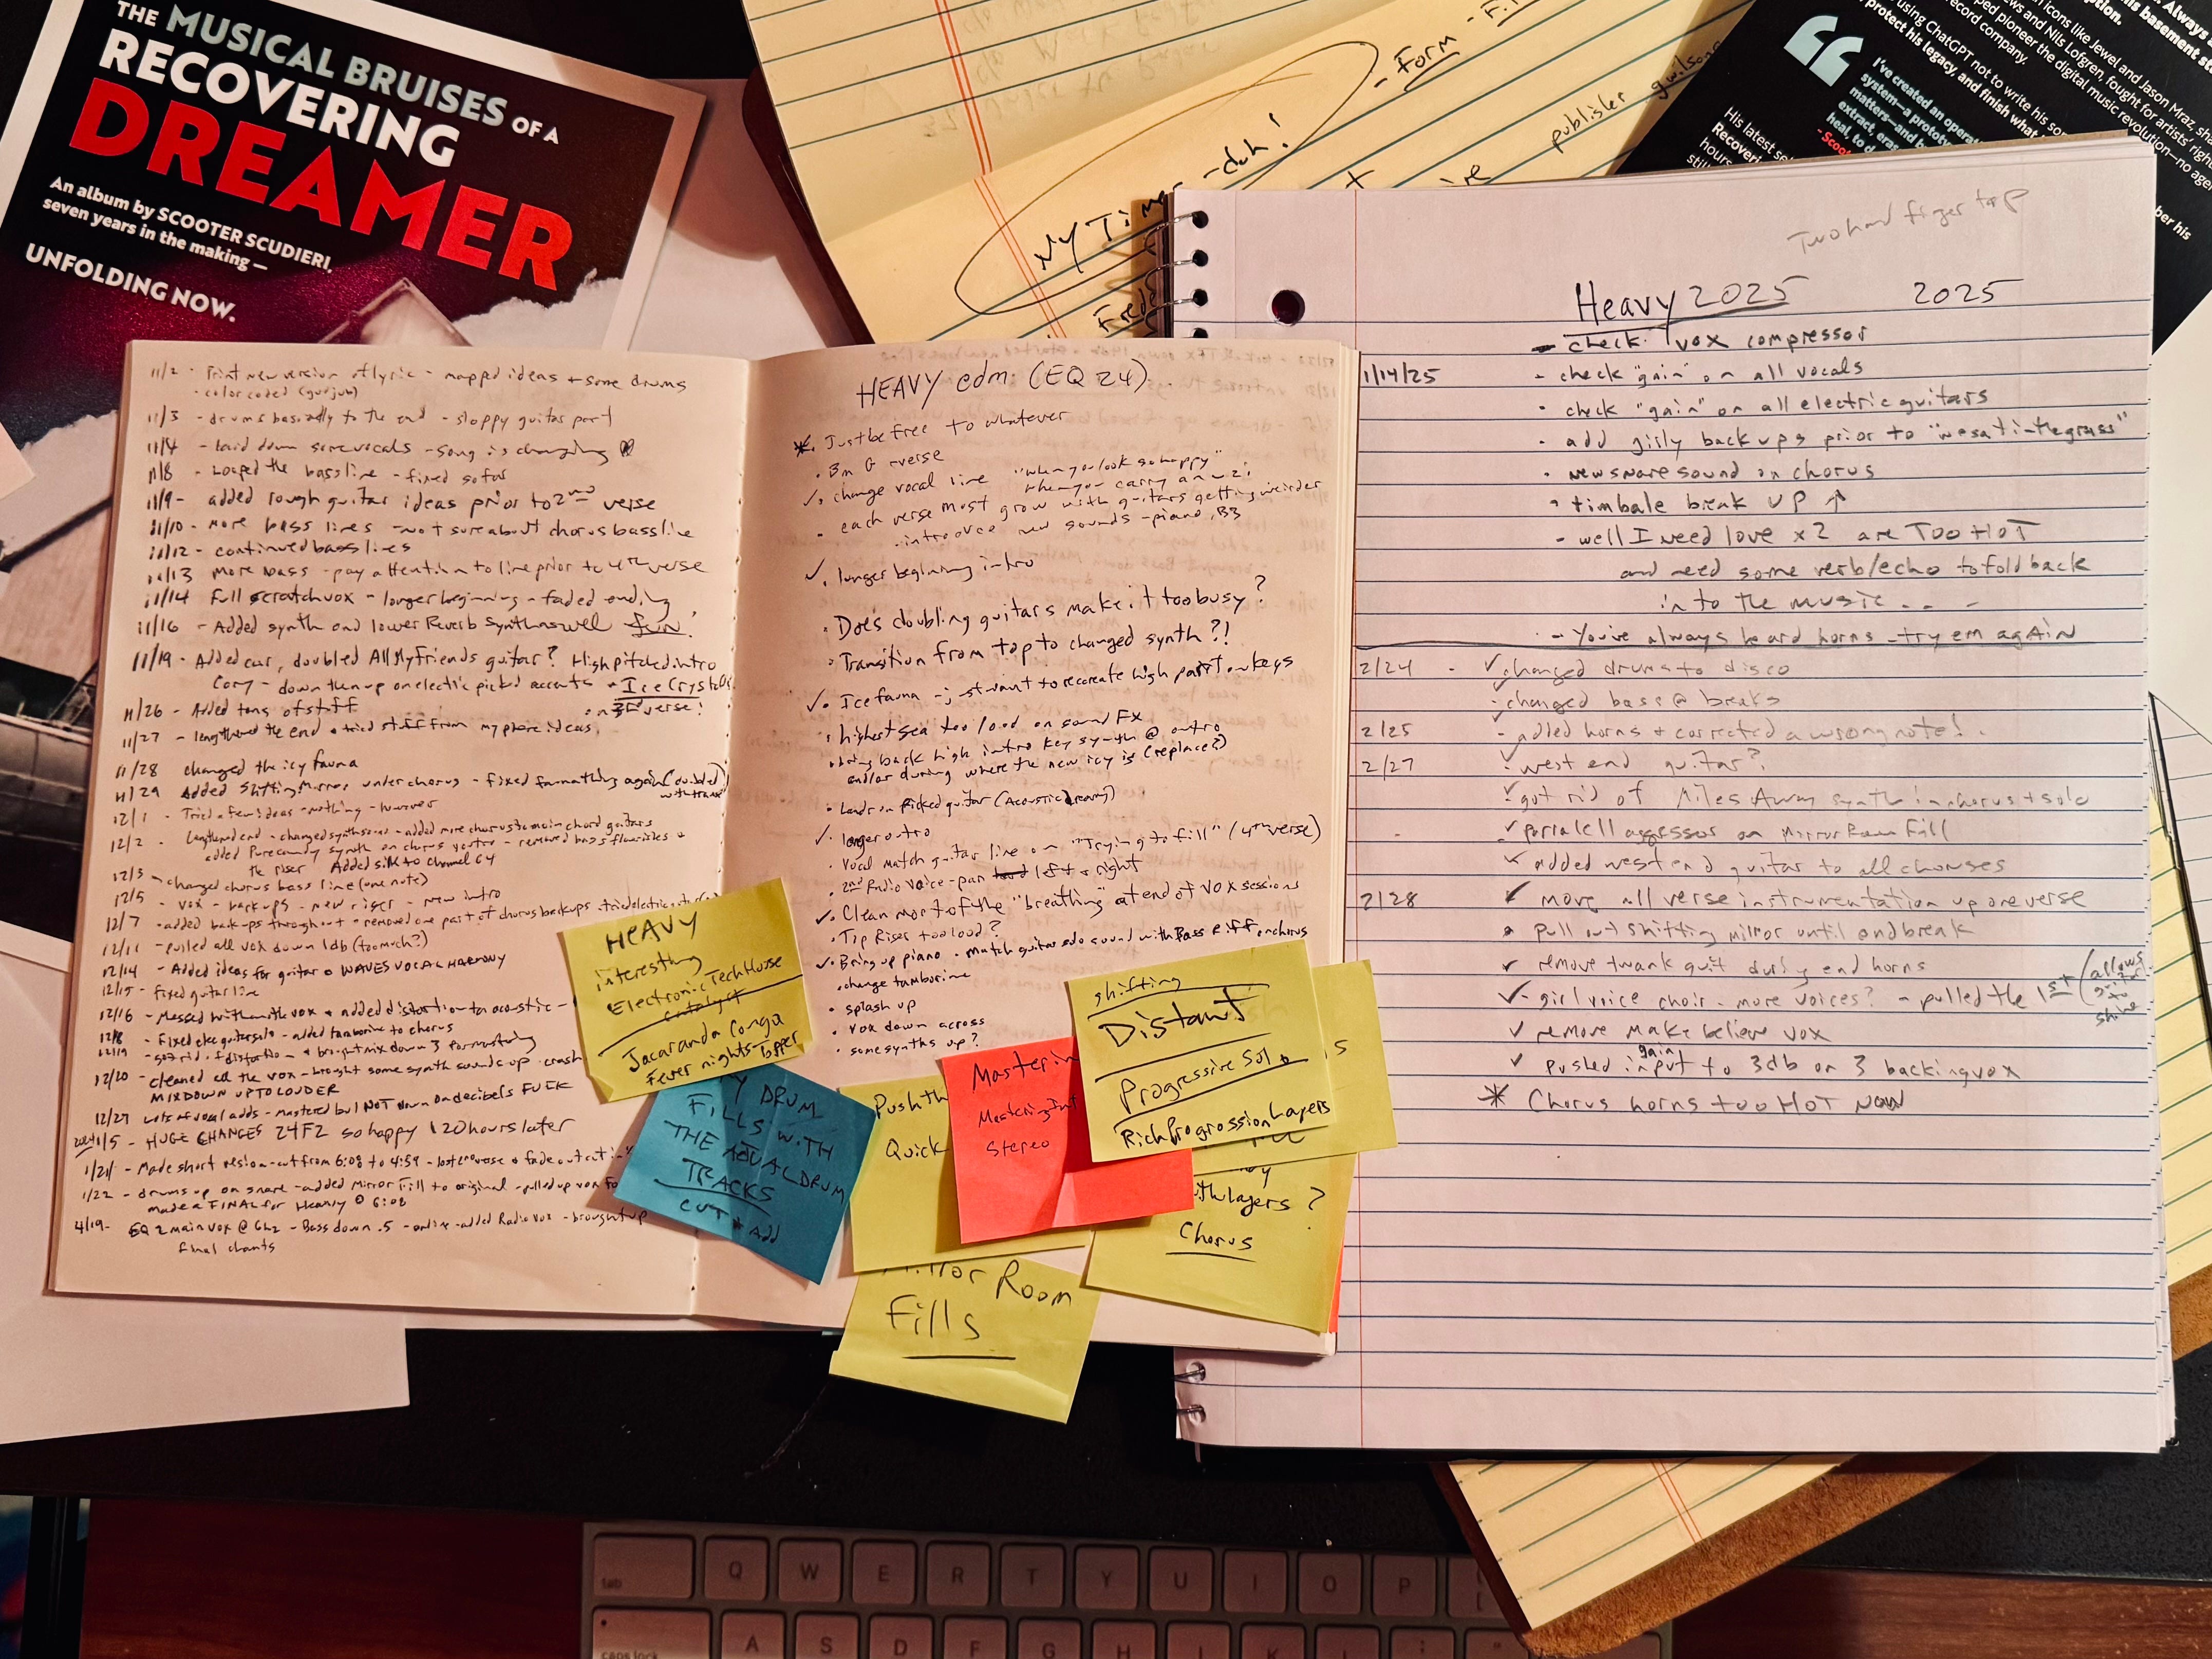 THE MUSICAL BRUISES OF A
RECOVERING
DREAMER
An album by SCOOTER SCUDIERI,
seven years in the making —
UNFOLDING NOW.
My Time -duh!
- Form
publisher
11/2 - Print new version of lyric - mapped ideas + some drums
- color coded
11/3 - drums basically to the end - sloppy guitar part
11/4 - laid down some vocals - song is changing
11/8 - looped the bass line - fixed so far
11/9 - added rough guitar ideas prior to 2nd verse
11/10 - more bass lines - not sure about chorus bass line
11/12 - continued bass lines
11/13 more bass - pay attention to line prior to 4th verse
11/14 Full scratch vox - longer beginning - faded ending
11/16 - Added synth and lower Reverb Synth fun!
11/19 - Added ear, doubled All My Friends guitar? High pitched intro
Cory - down then up on electric picked accents + Ice Crystals
on 3rd verse!
11/26 - Added tons of stuff
11/27 - lengthened the end + tried stuff from my phone ideas
11/28 changed the icy fauna
11/29 Added Shifting Mirror under chorus - fixed again (doubled)
12/1 - Tried a few ideas - nothing - however
12/2 Lengthened end - changed synth - added more chorus to main chord guitars
added Pure candy synth on chorus - removed bass flourishes +
the riser Added silk to channel 64
12/3 - changed chorus bass line (one note)
12/5 - vox - backups - new riser - new intro
12/7 - added backups throughout - removed one part of chorus backups
12/11 - pulled all vox down 1db (too much?)
12/14 - Added ideas for guitar + WAVES VOCAL HARMONY
12/15 - fixed guitar line
12/16 - Messed with the vox + added distortion to acoustic -
12/18 - Fixed guitar solo - added tamborine to chorus
12/19 - got rid of distortion + brought mix down 3 for mastering
12/20 - cleaned all the vox - brought some synth sounds up - crash
MIXDOWN UP TO LOUDER
12/27 Lots of vocal adds - mastered but NOT down on decibels FUCK
1/5 - HUGE CHANGES 24F2 so happy 120 hours later
1/21 - Made short version - cut from 6:08 to 4:59 - lost one verse + fade out
1/22 - drums up on snare - added Mirror Fill to original - pulled up vox
made a FINAL for Heavy @ 6:08
4/19 - EQ 2 main vox - Bass down .5 - added Radio vox - brought up
final chants
HEAVY edm (EQ 24)
* Just be free to whatever
• Bm G verse
✓ • change vocal line "when you look so happy"
"when you carry an uzi"
- each verse must grow with guitars getting weirder
- introduce new sounds - piano, B3
✓ • longer beginning intro
• Does doubling guitars make it too busy?
• Transition from top to changed synth?!
✓ • Ice fauna - just want to recreate high part on keys
• highest sea too loud on sound FX
• bring back high intro key synth @ outro
and/or during where the new icy is (replace?)
• Leads on Picked guitar (Acoustic dreamy)
✓ longer outro
• vocal match guitar line on "Trying to fill" (4th verse)
• 2nd Radio voice - pan hard left + right
✓ • Clean most of the "breathing" at end of vox sessions
• Tip Riser too loud?
✓ • Bring up piano - match guitar solo sound with Bass riff on chorus
• change tamborine
• splash up
• vox down across
• some synths up?
HEAVY
interesting
Electronic Tech House
Catalyst
Jacaranda Conga
Fever nights - Topper
DRUM
FILLS WITH
THE ACTUAL DRUM
TRACKS
CUT + Add
Push th
Quick
Mirror Room
Fills
Masterin
Mastering
Stereo
shifting
Distant
Progressive Solo
Rich Progression Layers
layers?
Chorus
Two hand finger tap
Heavy 2025 2025
- check vox compressor
1/14/25 - check "gain" on all vocals
• check "gain" on all electric guitars
• add girly back ups prior to "we sat in the grass"
• new snare sound on chorus
• timbale break UP ↑
- well I need love x2 are TOO HOT
and need some verb/echo to fold back
into the music...
- You've always heard horns - try em agAin
2/24 - ✓ changed drums to disco
• changed bass @ breaks
2/25 - added horns + corrected a wrong note!
2/27 ✓ west end guitar?
✓ got rid of Miles Away synth in chorus + solo
✓ parallel aggressor on Mirror Room Fill
✓ added west end guitar to all choruses
2/28 ✓ move all verse instrumentation up one verse
• pull out shifting mirror until end break
✓ remove twank guit during end horns
✓ - girl voice choir - more voices? - pulled the 1st (allows
guitar
to
shine
✓ remove make believe vox
✓ pushed gain input to 3db on 3 backing vox
* Chorus horns too HOT now
I've created an operat
system—a prototy
matters—and b
extract, era
heal, to d
- Scoot
icons like Jewel and Jason Mraz, sha
and Nils Lofgren, fought for artists' right
pioneer the digital music revolution—no agen
record company.
using ChatGPT not to write his so
protect his legacy, and finish what
His latest se
Recoveri
hours
tab Q W E R T Y U I O P
caps lock A S D F G H J K L